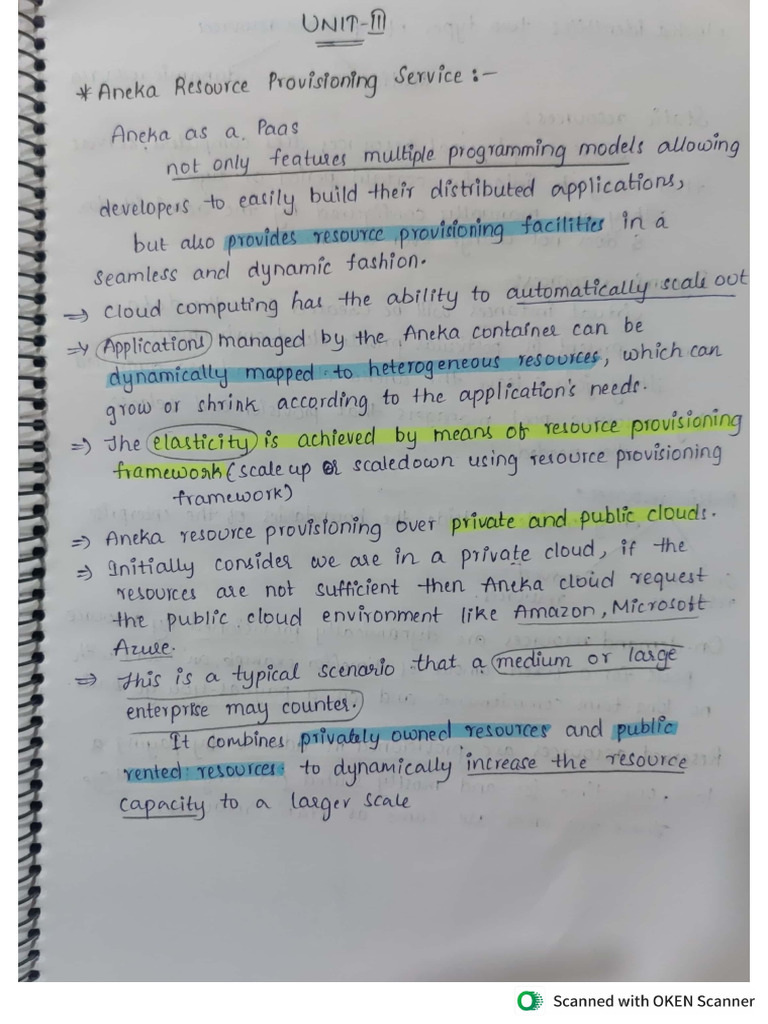 UNIT-III
* Aneka Resource Provisioning Service :-
Aneka as a Paas
not only features multiple programming models allowing
developers to easily build their distributed applications,
but also provides resource provisioning facilities in a
seamless and dynamic fashion.
⇒ Cloud computing has the ability to automatically scale out
⇒ Applications managed by the Aneka container can be
dynamically mapped to heterogeneous resources, which can
grow or shrink according to the application's needs.
⇒ The elasticity is achieved by means of resource provisioning
framework (scale up or scaledown using resource provisioning
framework)
⇒ Aneka resource provisioning over private and public clouds.
⇒ Initially consider we are in a private cloud, if the
resources are not sufficient then Aneka cloud request
the public cloud environment like Amazon, Microsoft
Azure.
⇒ This is a typical scenario that a medium or large
enterprise may counter.
It combines privately owned resources and public
rented resources to dynamically increase the resource
capacity to a larger scale
Scanned with OKEN Scanner